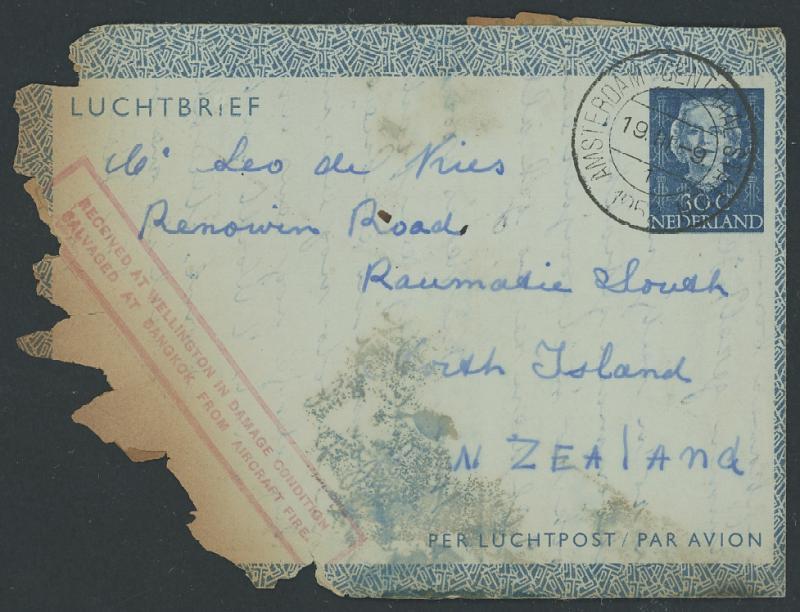 LUCHTBRIEF
AMSTERDAM-CENTRAAL STA
19.III-9
30C
NEDERLAND
Mr Leo de Vries
Renowin Road
Raumatie South
North Island
N ZEAlANd
RECEIVED AT WELLINGTON IN DAMAGE CONDITION
SALVAGED AT BANGKOK FROM AIRCRAFT FIRE.
PER LUCHTPOST / PAR AVION